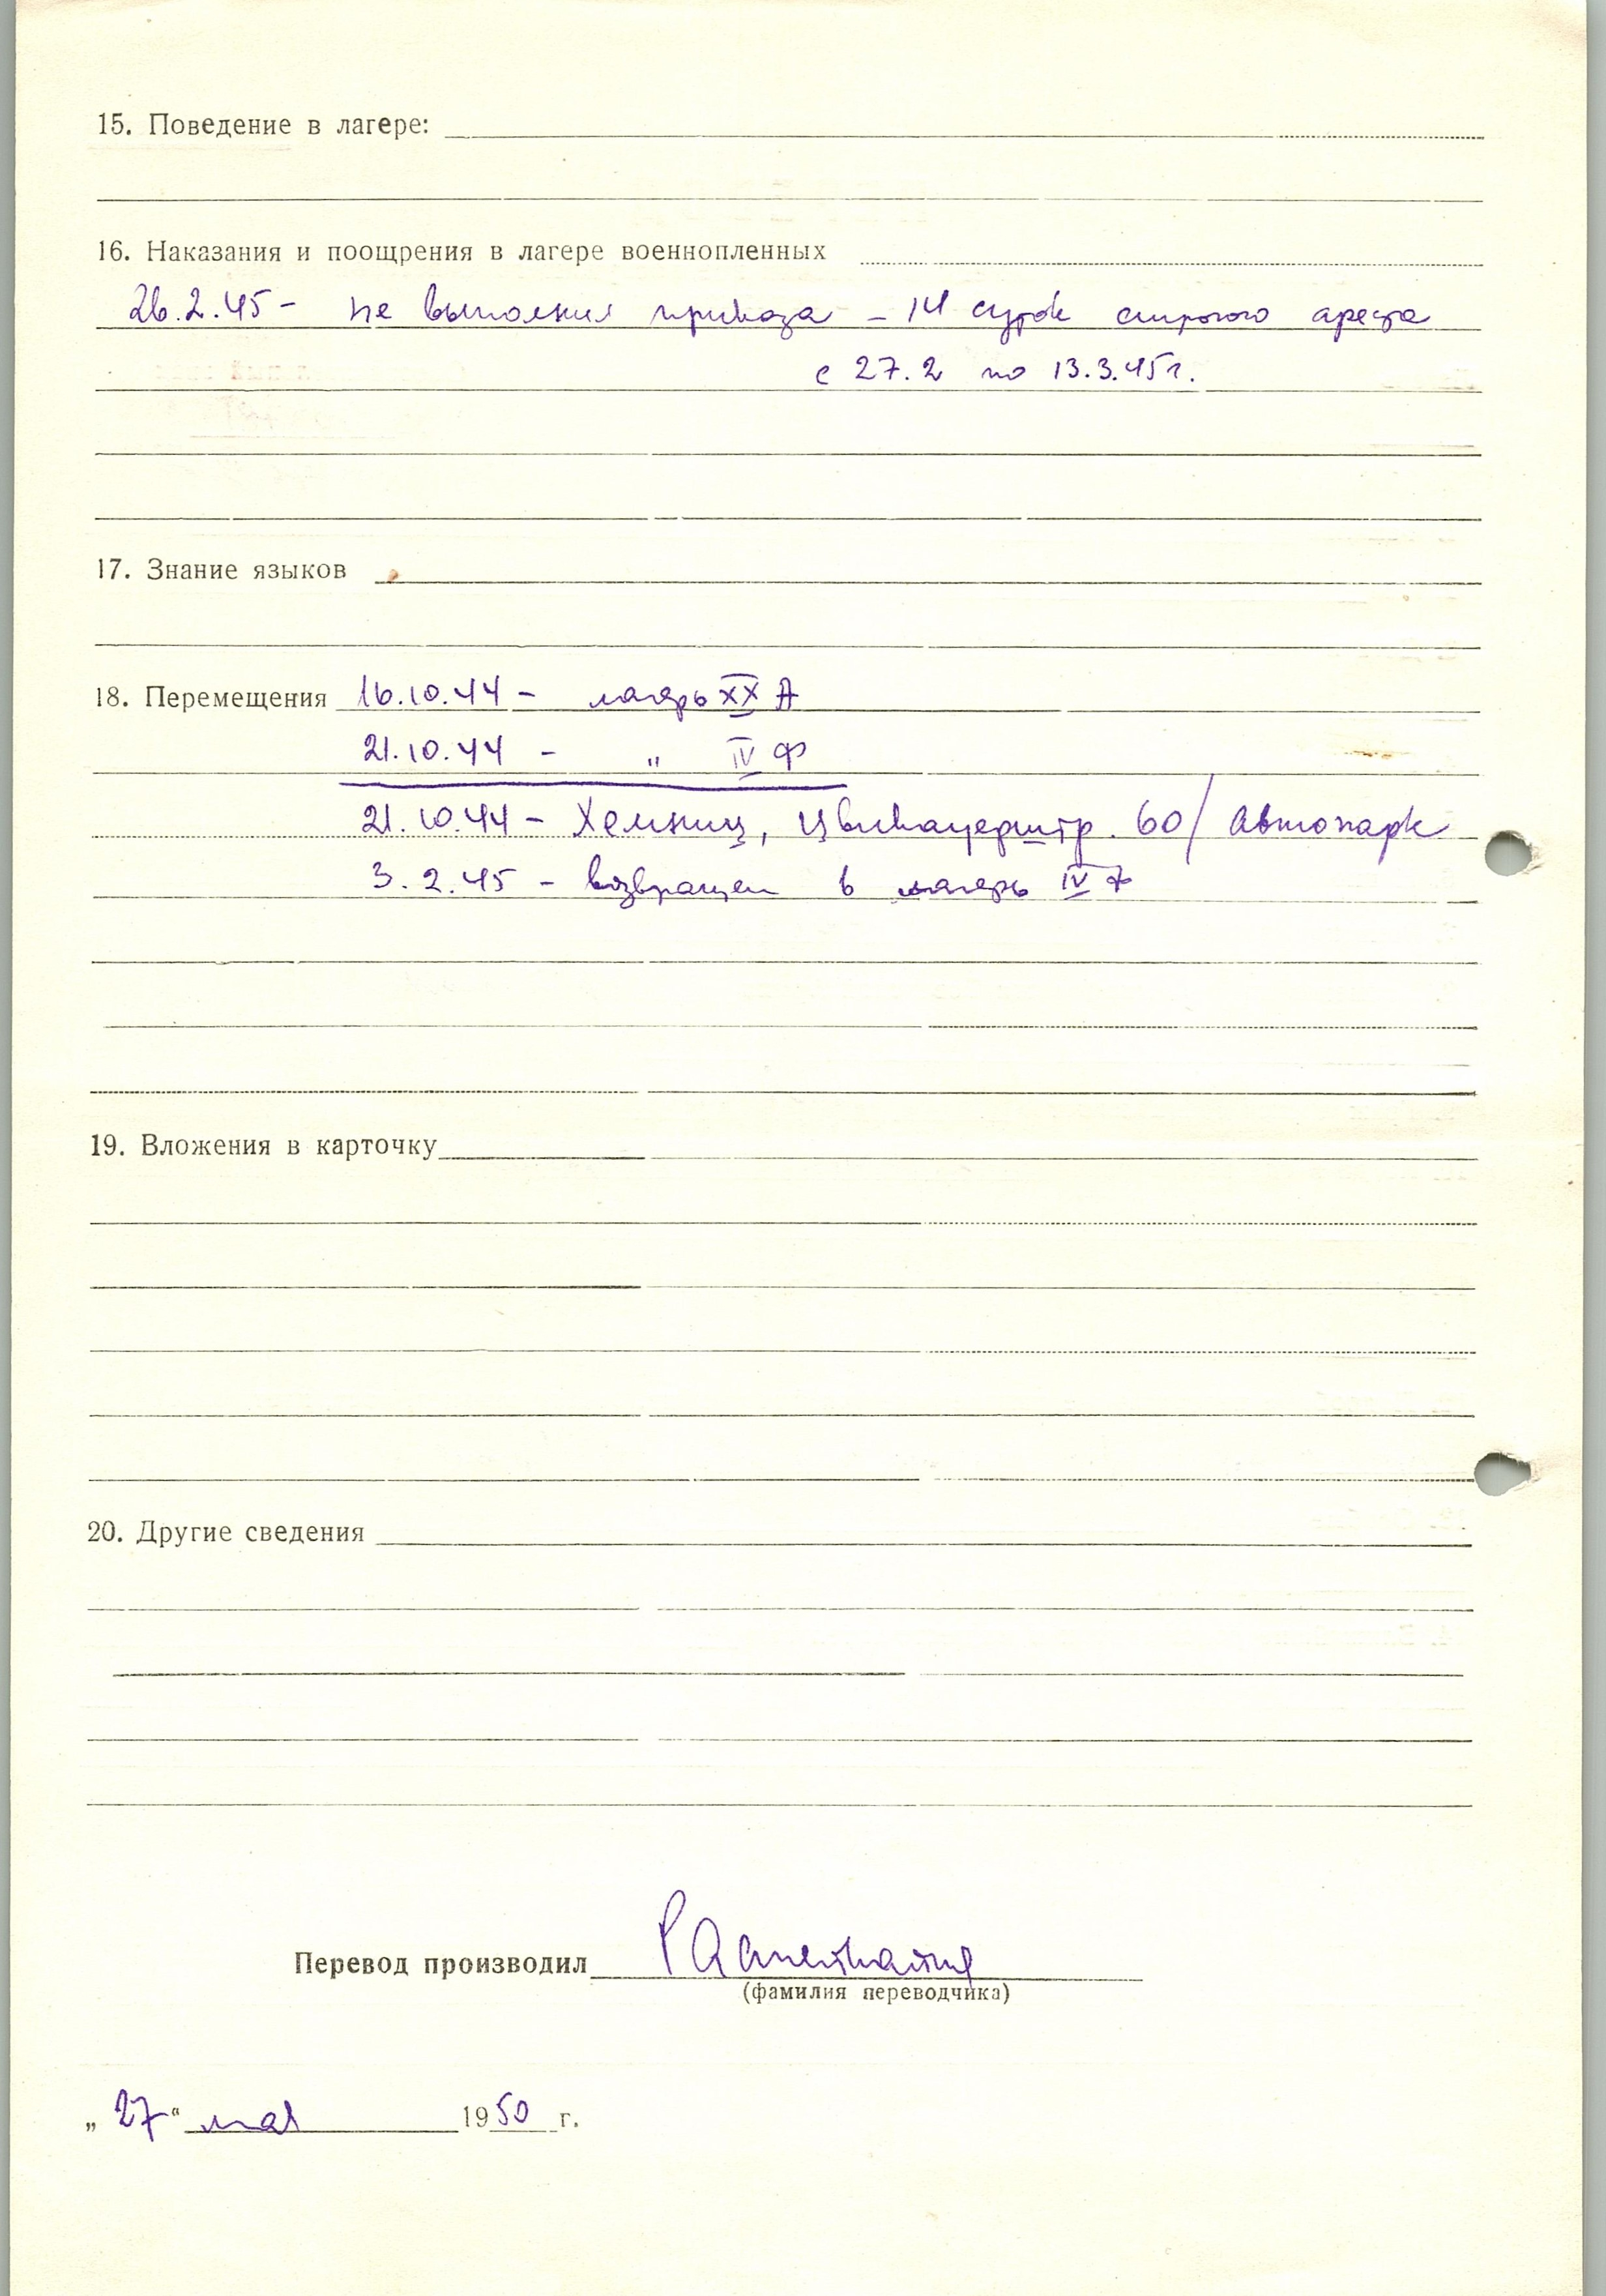 15. Поведение в лагере:
16. Наказания и поощрения в лагере военнопленных
26.2.45 - не выполнил приказа - 14 суток строгого ареста
с 27.2 по 13.3.45 г.
17. Знание языков
18. Перемещения 16.10.44 - лагерь XX А
21.10.44 - " IV Ф
21.10.44 - Хемниц, Цвикауерштр. 60/ Автопарк
3.2.45 - возвращен в лагерь IV Ф
19. Вложения в карточку
20. Другие сведения
Перевод производил
(фамилия переводчика)
„27“ мая 1950 г.